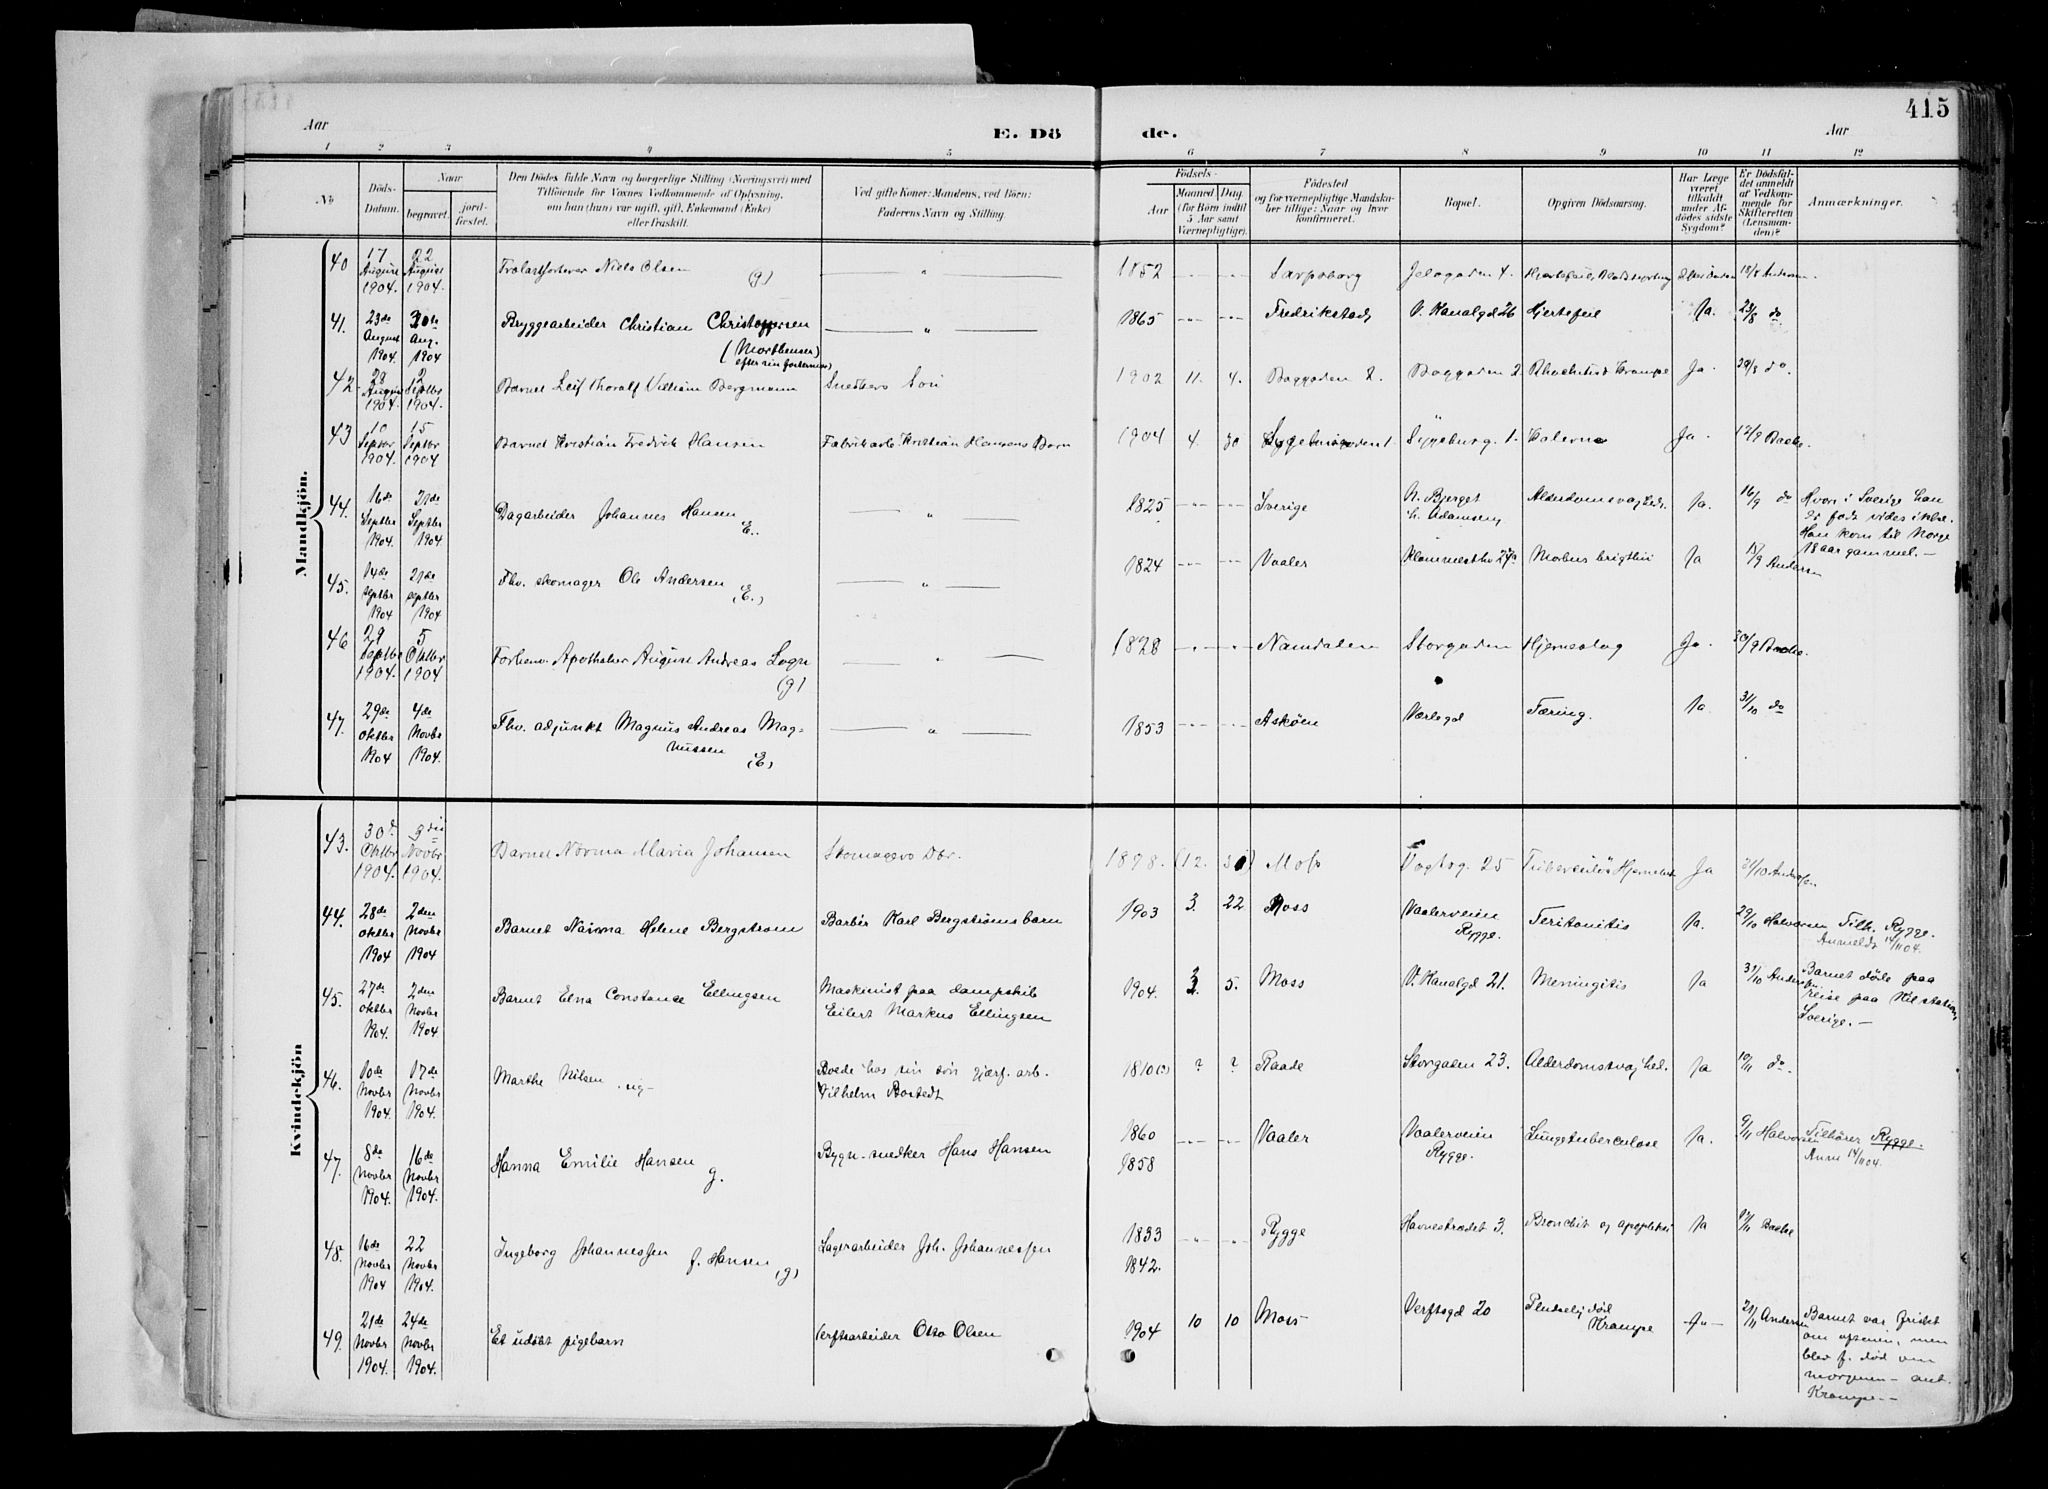 415
Aar
E. Dö
de.
Aar
1 2 3 4 5 6 7 8 9 10 11 12
No
Döds-Datum.
Naar
begravet.
jord-fæstet.
Den Dödes fulde Navn og borgerlige Stilling (Næringsvei) med
Tilföiende for Voxnes Vedkommende af Oplysning,
om han (hun) var ugift, gift, Enkemand (Enke)
eller fraskilt.
Ved gifte Koner: Mandens, ved Börn:
Faderens Navn og Stilling.
Födsels-
Aar
Maaned
Dag
(for Börn indtil
5 Aar samt
Værnepligtige).
Födested
og for værnepligtige Mandskaber tillige: Naar og hvor konfirmeret.
Bopæl.
Opgiven Dödsaarsag.
Har Læge været tilkaldt under Afdödes sidste Sygdom?
Er Dödsfaldet anmeldt af Vedkommende for Skifteretten (Lensmanden)?
Anmærkninger.
Mandkjön.
40 17 August 1904. 22 August 1904. Niels Olsen (g) " 1852 Sarpsborg Jelögaden 4. 18/8 Andersen
41. 23de August 1904. 30te Aug. 1904 Bryggearbeider Christian Christoffersen " 1865 Fredrikstad V. Kanalgd 26 Hjertefeil Ja. 23/8 do
(Morthensen)
42 29 August 1904. 2 Septbr 1904. Barnet Leif Thoralf Villiam Bergmann Snedkers Sön 1902 11. 4. Baggaden 2. Baggaden 2 Krampe Ja. 30/8 do.
43 10 Septbr 1904. 15 Septbr 1904 Barnet Kristian Fredrik Hansen Fabrikarb. Kristian Hansens Barn 1904 4. 30 1. Ja. 12/9 Backe.
44. 16de Septbr 1904. 21de Septbr 1904 Dagarbeider Johannes Hansen E. " 1825 Sverige N. Bjerget h. Adamsen, Alderdomsvaghed. Ja. 16/9 do Hvor i Sverige han
er födt vides ikke.
Han kom til Norge
18 aar gammel. —
45. 14de septbr 1904 21de septbr 1904 Fhv. skomager Ole Andersen (E.) " 1824 Vaaler Morbus brigthii Ja 15/9 Andersen
46 29 Septbr 1904. 5 Oktbr 1904 Forhenv. Apotheker August Andreas (g) " 1828 Namdalen Storgaden Hjerneslag Ja. 30/9 Backe.
47. 29de Oktbr 1904 4de Novbr 1904. Fhv. adjunkt Magnus Andreas Mag-
nussen (E) " 1853 Asköen Værlegd Tæring. Ja. 31/10 do
Kvindekjön
43. 30 Oktbr 1904. 3die Novbr 1904. Barnet Norma Maria Johansen Skomagers Dtr. 1898 (12. 30) Moss Vogtsg. 25 Ja 31/10 Andersen
44. 28de Oktbr 1904 2den Novbr 1904 Barnet Naima Helene Bergstrøm Barbér Karl Bergströms barn 1903 3. 22 Moss Vaalerveien Rygge. Peritonitis Ja. 29/10 Halvorsen Tilh. Rygge.
Anmeldt 14/11 04.
45. 27de Oktbr 1904. 2den Novbr 1904 Barnet Elna Constance Ellingsen Maskinist paa dampskib
Eilert Markus Ellingsen 1904. 3. 5. Moss V. Kanalgd 21. Meningitis Ja 31/10 Andersen Barnet döde paa
reise paa Kil station,
Sverige. —
46. 10de Novbr 1904. 17de Novbr 1904. Marthe Nilsen ug— Boede hos sin sön arb.
Vilhelm Bostedt 1810(?) ? ? Raade Storgaden 23. Alderdomsvaghed. Ja 10/11 do.
47. 8de Novbr 1904. 16de Novbr 1904. Hanna Emilie Hansen g. Bygn.-snedker Hans Hansen 1860
1858 Vaaler Vaalerveien Rygge. Lungetuberculose Ja. 9/11 Halvorsen Tilhörer Rygge.
Anm 14/11 04.
48. 16de Novbr 1904 22 Novbr 1904. Ingeborg Johannessen f. Hansen (g) Lagerarbeider Joh. Johannessen 1833
1842. Rygge Havnestrædet 3. Bronchit og apoplexi Ja 17/11 Backe
49. 21de Novbr 1904. 24de Novbr 1904. Et udöbt pigebarn Verftsarbeider Otto Olsen 1904 10 10 Moss Verftsgd 20 Pludselig död
Krampe 21/11 Andersen Barnet var friskt
om aftenen, men
blev f. död om
morgenen — ant.
Krampe —